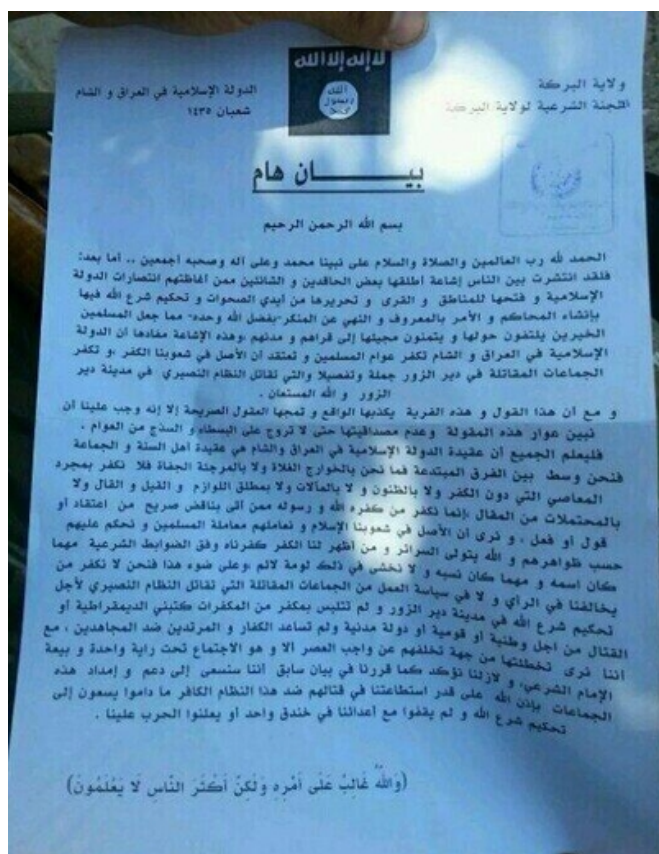 لا إله إلا الله
الله
رسول
محمد
ولاية البركة
اللجنة الشرعية لولاية البركة
الدولة الإسلامية في العراق و الشام
شعبان ١٤٣٥
بيـــــان هام
بسم الله الرحمن الرحيم
الحمد لله رب العالمين والصلاة والسلام على نبينا محمد وعلى آله وصحبه أجمعين .. أما بعد:
فلقد انتشرت بين الناس إشاعة أطلقها بعض الحاقدين و الشانئين ممن أغاظتهم انتصارات الدولة
الإسلامية و فتحها للمناطق و القرى و تحريرها من أيدي الصحوات و تحكيم شرع الله فيها
بإنشاء المحاكم و الأمر بالمعروف و النهي عن المنكر-بفضل الله وحده- مما جعل المسلمين
الخيرين يلتفون حولها و يتمنون مجيئها إلى قراهم و مدنهم ،وهذه الإشاعة مفادها أن الدولة
الإسلامية في العراق و الشام تكفر عوام المسلمين و تعتقد أن الأصل في شعوبنا الكفر ،و تكفر
الجماعات المقاتلة في دير الزور جملة وتفصيلا والتي تقاتل النظام النصيري في مدينة دير
الزور و الله المستعان .
و مع أن هذا القول و هذه الفرية يكذبها الواقع و تمجها العقول الصريحة إلا إنه وجب علينا أن
نبين عوار هذه المقولة وعدم مصداقيتها حتى لا تروج على البسطاء و السذج من العوام .
فليعلم الجميع أن عقيدة الدولة الإسلامية في العراق والشام هي عقيدة أهل السنة و الجماعة
فنحن وسط بين الفرق المبتدعة فما نحن بالخوارج الغلاة ولا بالمرجئة الجفاة فلا نكفر بمجرد
المعاصي التي دون الكفر ولا بالظنون و لا بالمآلات ولا بمطلق اللوازم و القيل و القال ولا
بالمحتملات من المقال ،إنما نكفر من كفره الله و رسوله ممن أتى بناقض صريح من اعتقاد أو
قول أو فعل ، و نرى أن الأصل في شعوبنا الإسلام و نعاملهم معاملة المسلمين و نحكم عليهم
حسب ظواهرهم و الله يتولى السرائر و من أظهر لنا الكفر كفرناه وفق الضوابط الشرعية مهما
كان اسمه و مهما كان نسبه و لا نخشى في ذلك لومة لائم ،وعلى ضوء هذا فنحن لا نكفر من
يخالفنا في الرأي و لا في سياسة العمل من الجماعات المقاتلة التي تقاتل النظام النصيري لأجل
تحكيم شرع الله في مدينة دير الزور و لم تتلبس بمكفر من المكفرات كتبني الديمقراطية أو
القتال من اجل وطنية أو قومية أو دولة مدنية ولم تساعد الكفار و المرتدين ضد المجاهدين ، مع
أننا نرى تخطئتها من جهة تخلفهم عن واجب العصر ألا و هو الاجتماع تحت راية واحدة و بيعة
الإمام الشرعي، و لازلنا نؤكد كما قررنا في بيان سابق أننا سنسعى إلى دعم و إمداد هذه
الجماعات بإذن الله على قدر استطاعتنا في قتالهم ضد هذا النظام الكافر ما داموا يسعون إلى
تحكيم شرع الله و لم يقفوا مع أعدائنا في خندق واحد أو يعلنوا الحرب علينا .
(وَاللَّهُ غَالِبٌ عَلَى أَمْرِهِ وَلَكِنَّ أَكْثَرَ النَّاسِ لَا يَعْلَمُونَ)